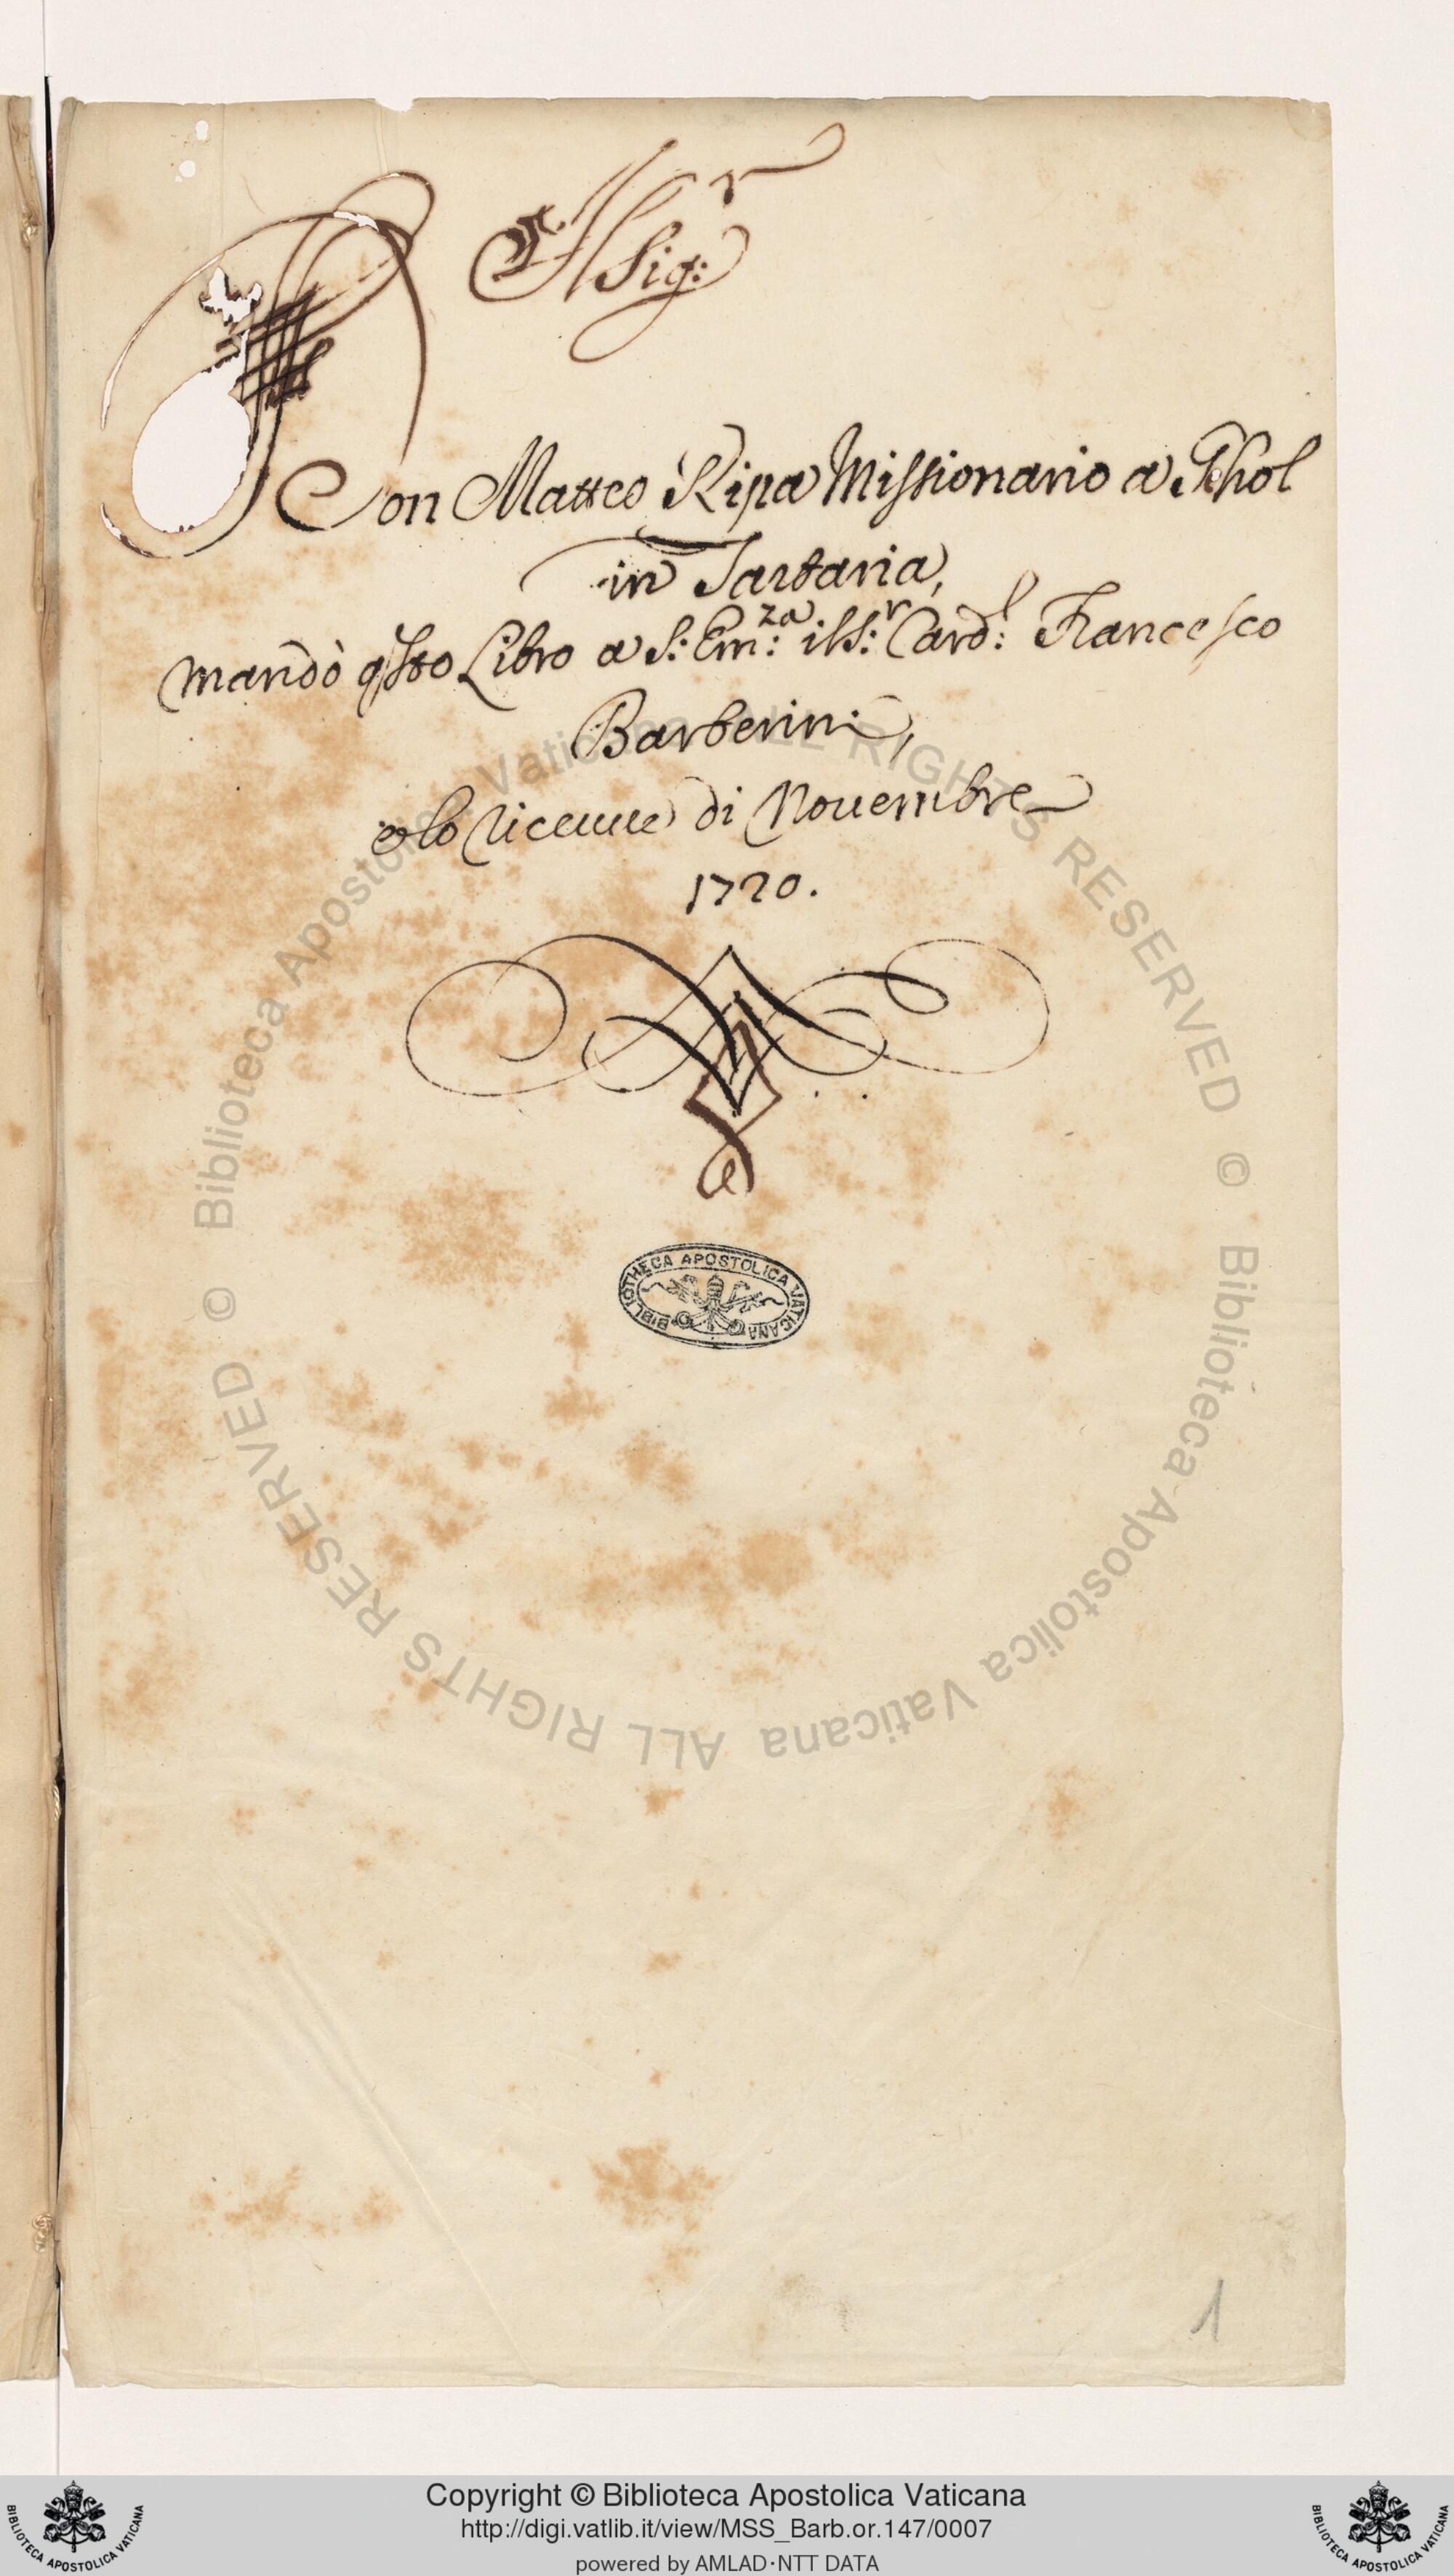 Il Sig:r
Don Matteo Ripa Missionario a Jehol
in Tartaria,
mandò qsto Libro a S: Em:za il S:r Card:l Francesco
Barberini,
e lo riceuue di Nouembre
1720.
BIBLIOTHECA APOSTOLICA VATICANA
1
© Biblioteca Apostolica Vaticana ALL RIGHTS RESERVED © Biblioteca Apostolica Vaticana ALL RIGHTS RESERVED
BIBLIOTECA APOSTOLICA VATICANA
Copyright © Biblioteca Apostolica Vaticana
http://digi.vatlib.it/view/MSS_Barb.or.147/0007
powered by AMLAD·NTT DATA
BIBLIOTECA APOSTOLICA VATICANA